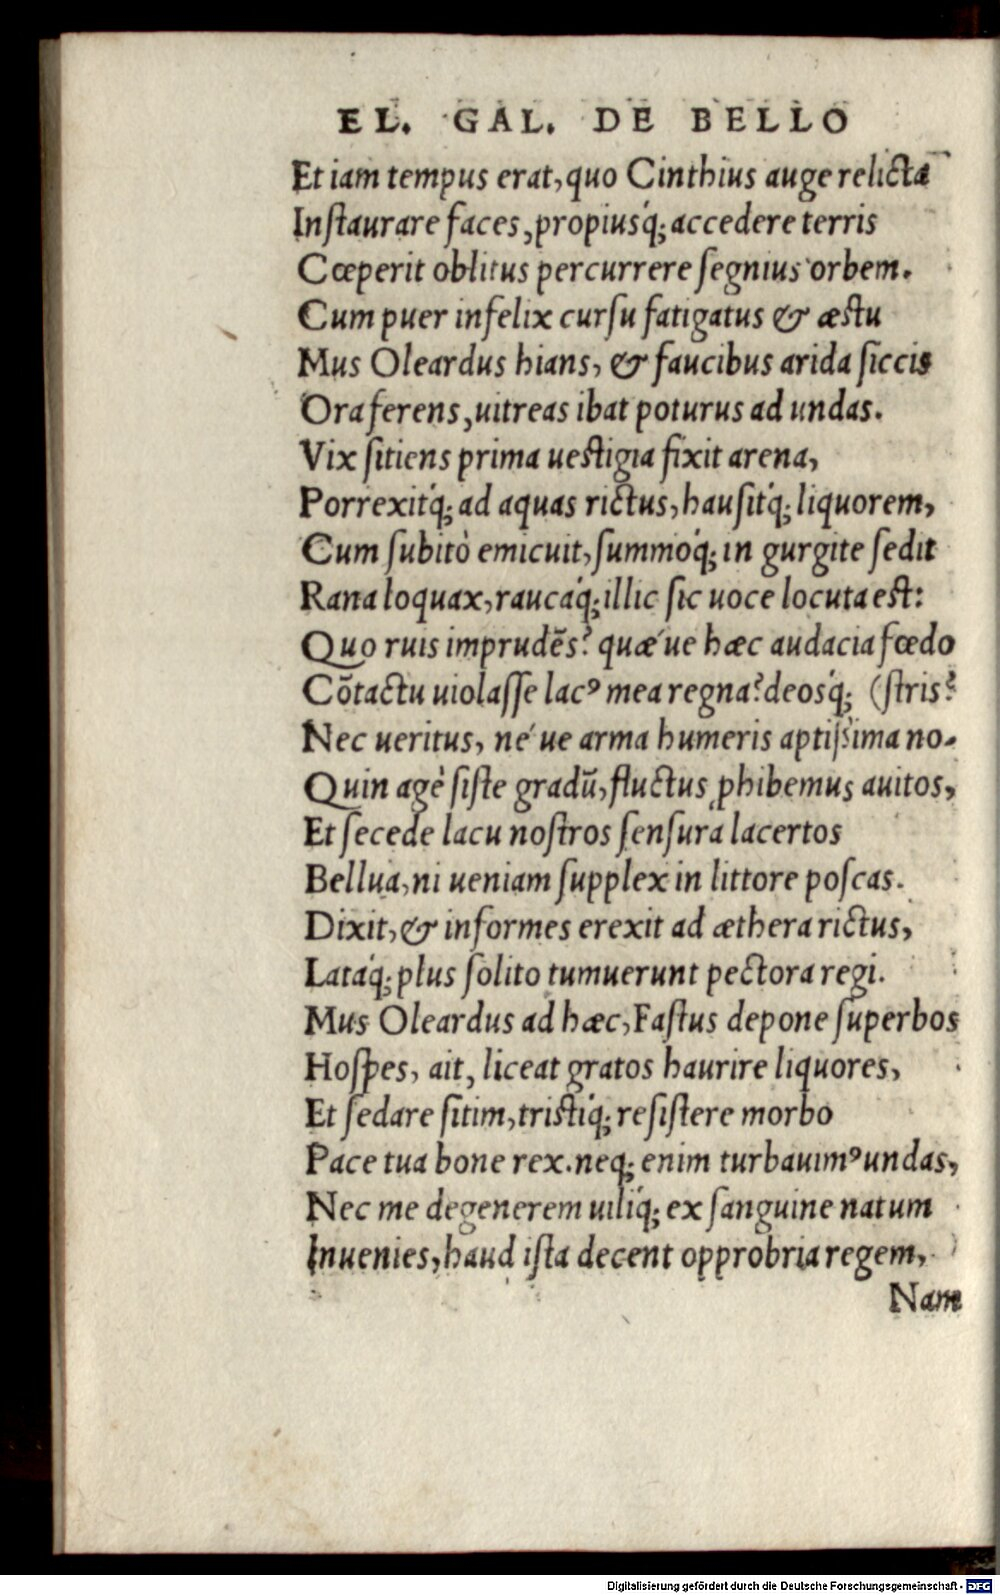 EL. GAL. DE BELLO
Et iam tempus erat, quo Cinthius auge relictā
Inſtaurare faces, propiusq́; accedere terris
Cœperit oblitus percurrere ſegnius orbem.
Cum puer infelix curſu fatigatus & æſtu
Mus Oleardus hians, & faucibus arida ſiccis
Ora ferens, uitreas ibat poturus ad undas.
Vix ſitiens prima ueſtigia fixit arena,
Porrexitq́; ad aquas rictus, hauſitq́; liquorem,
Cum ſubitò emicuit, ſummoq́; in gurgite ſedit
Rana loquax, raucaq́; illic ſic uoce locuta eſt:
Quo ruis imprudẽs? quæ´ue hæc audacia fœdo
Cõtactu uiolaſſe lacꝰ mea regna? deosq́; (ſtris?
Nec ueritus, ne´ue arma humeris aptiſsima no-
Quin agè ſiſte gradũ, fluctus ꝓhibemus auitos,
Et ſecede lacu noſtros ſenſura lacertos
Bellua, ni ueniam ſupplex in littore poſcas.
Dixit, & informes erexit ad æthera rictus,
Lataq́; plus ſolito tumuerunt pectora regi.
Mus Oleardus ad hæc, Faſtus depone ſuperbos
Hoſpes, ait, liceat gratos haurire liquores,
Et ſedare ſitim, triſtiq́; reſiſtere morbo
Pace tua bone rex. neq; enim turbauimꝰ undas,
Nec me degenerem uiliq́; ex ſanguine natum
Inuenies, haud iſta decent opprobria regem,
Nam
Digitalisierung gefördert durch die Deutsche Forschungsgemeinschaft - DFG